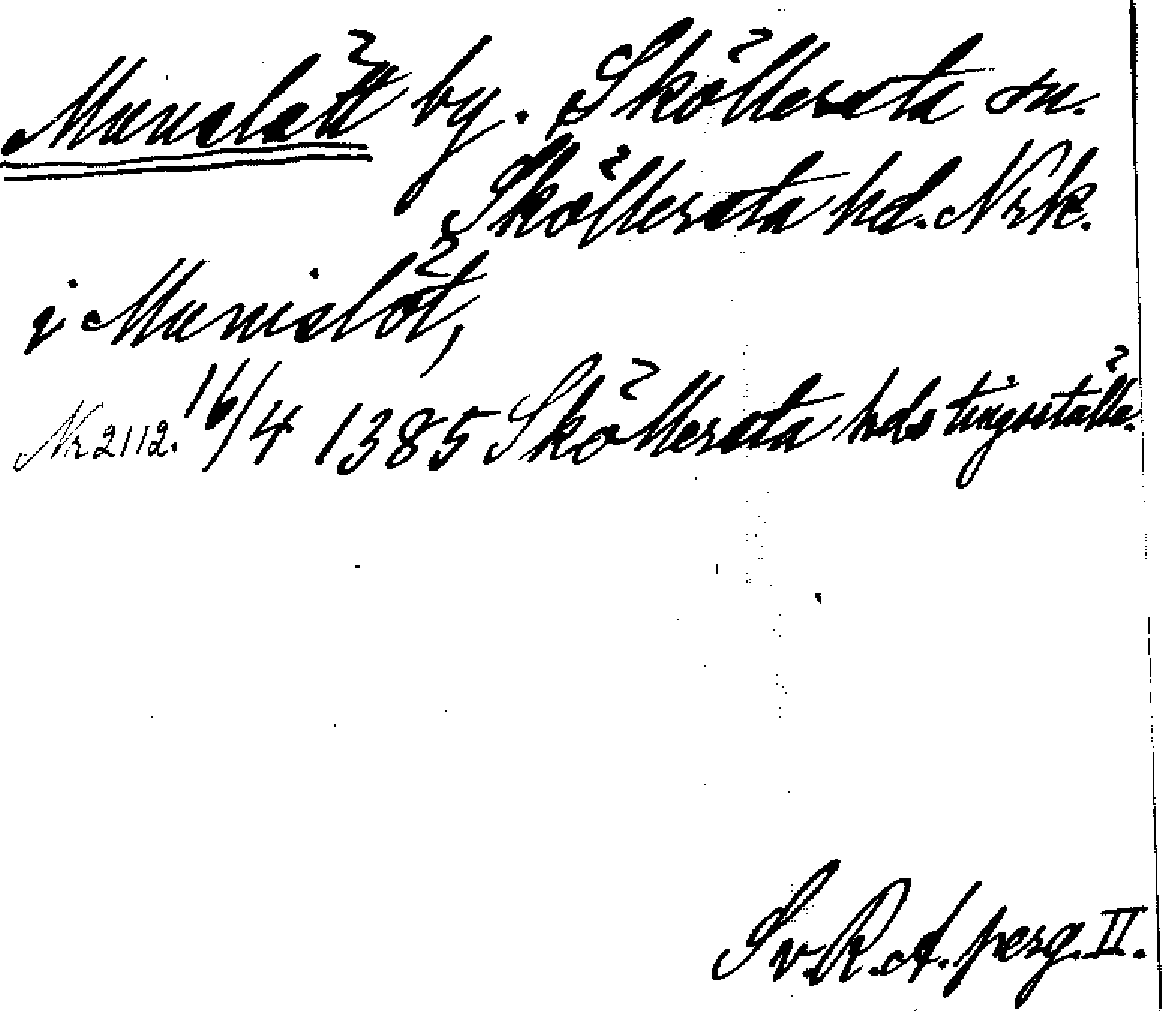 Munslätt by. Sköllersta sn.
Sköllersta hd. Nrk.
j Munislöt,
Nr 2112. 16/4 1385 Sköllersta hds tingsställe.
Sv. R. A. perg. II.